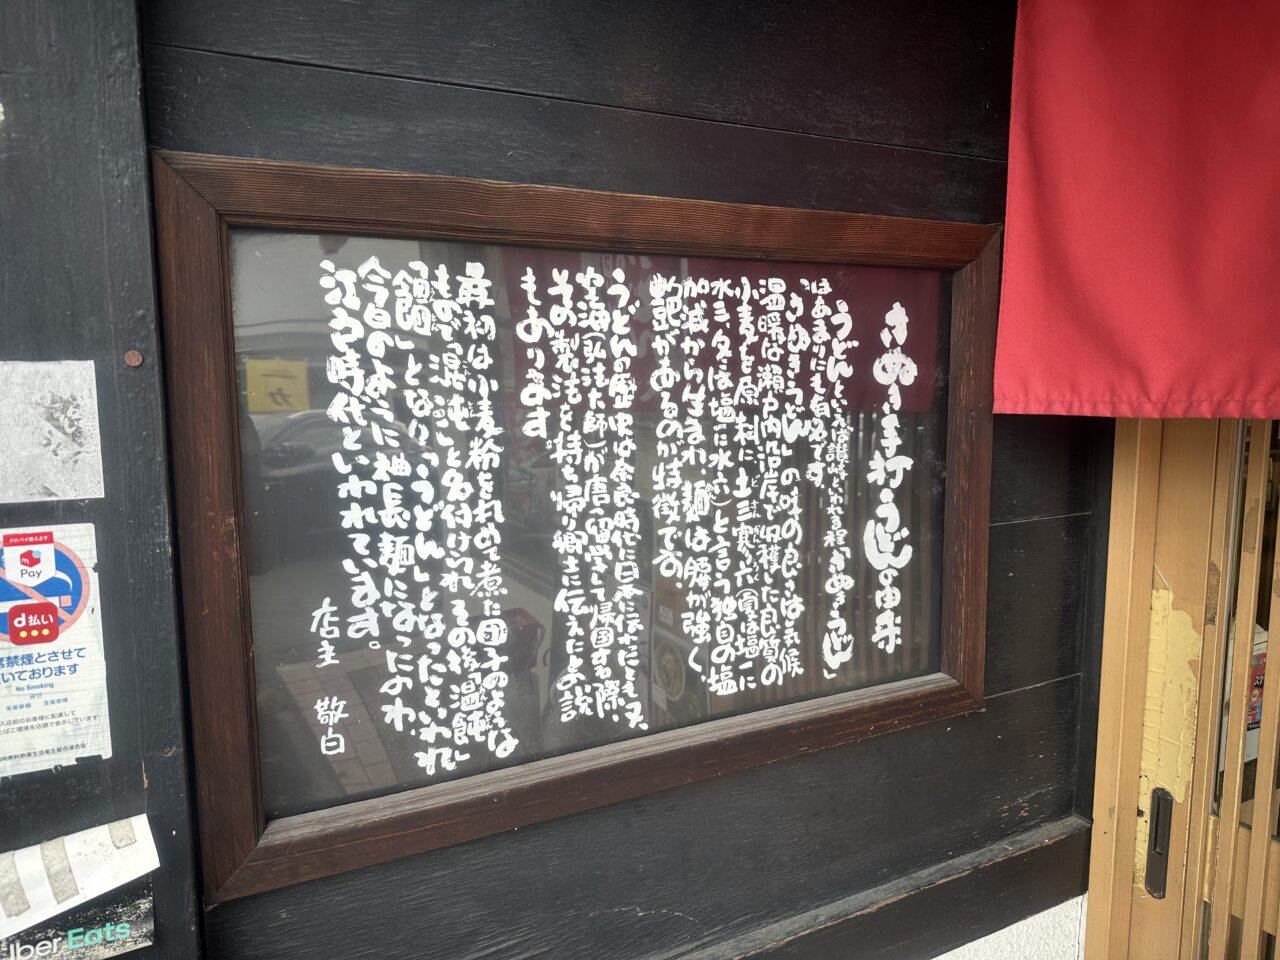 さぬき手打うどんの由来
うどんといえば讃岐といわれる程「さぬきうどん」
はあまりにも有名です。
「さぬきうどん」の味の良さは気候
温暖な瀬戸内沿岸で収穫した良質の
小麦を原料に、土三寒六(夏は塩一に
水三、冬は塩一に水六)と言う独自の塩
加減から生まれ、麺は腰が強く、
艶があるのが特徴です。
うどんの歴史は奈良時代に日本に伝わったとも又、
空海(弘法大師)が唐へ留学して帰国する際、
その製法を持ち帰り郷土に伝えたと云う説
もあります。
最初は小麦粉をまるめて煮た団子のようは
もので「混沌」と名付けられ、その後「温飩」
「饂飩」となり「うどん」となったといわれ、
今日のように細長い麺になったのわ、
江戸時代といわれています。
店主 敬白
メルペイ使えます
Pay
d払い
席禁煙とさせて
いております
No Smoking
全面禁烟
Uber Eats